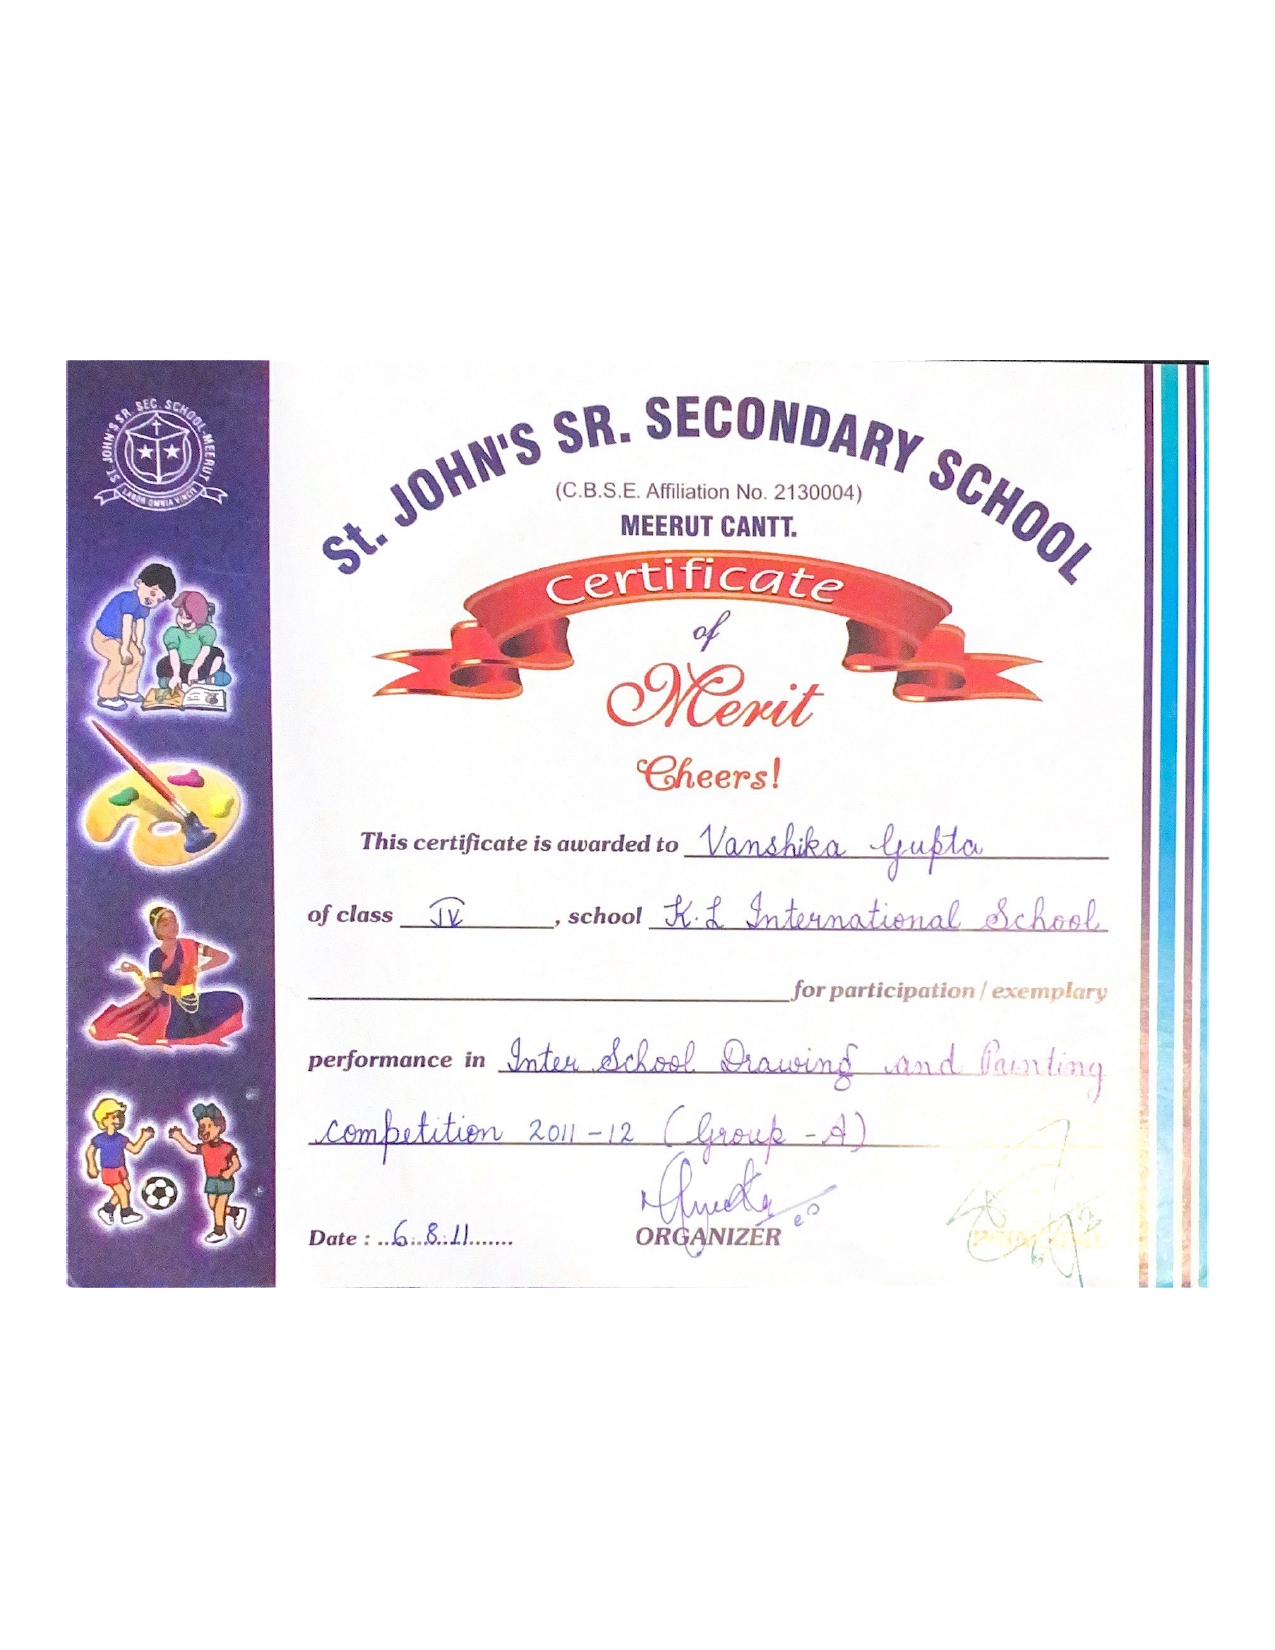 St. JOHN'S SR. SEC. SCHOOL-MEERUT
LABOR OMNIA VINCIT
St. JOHN'S SR. SECONDARY SCHOOL
(C.B.S.E. Affiliation No. 2130004)
MEERUT CANTT.
Certificate
of
Merit
Cheers!
This certificate is awarded to Vanshika Gupta
of class IV, school K.L International School
for participation / exemplary
performance in Inter School Drawing and Painting
competition 2011-12 (Group-A)
Date : 6.8.11
ORGANIZER